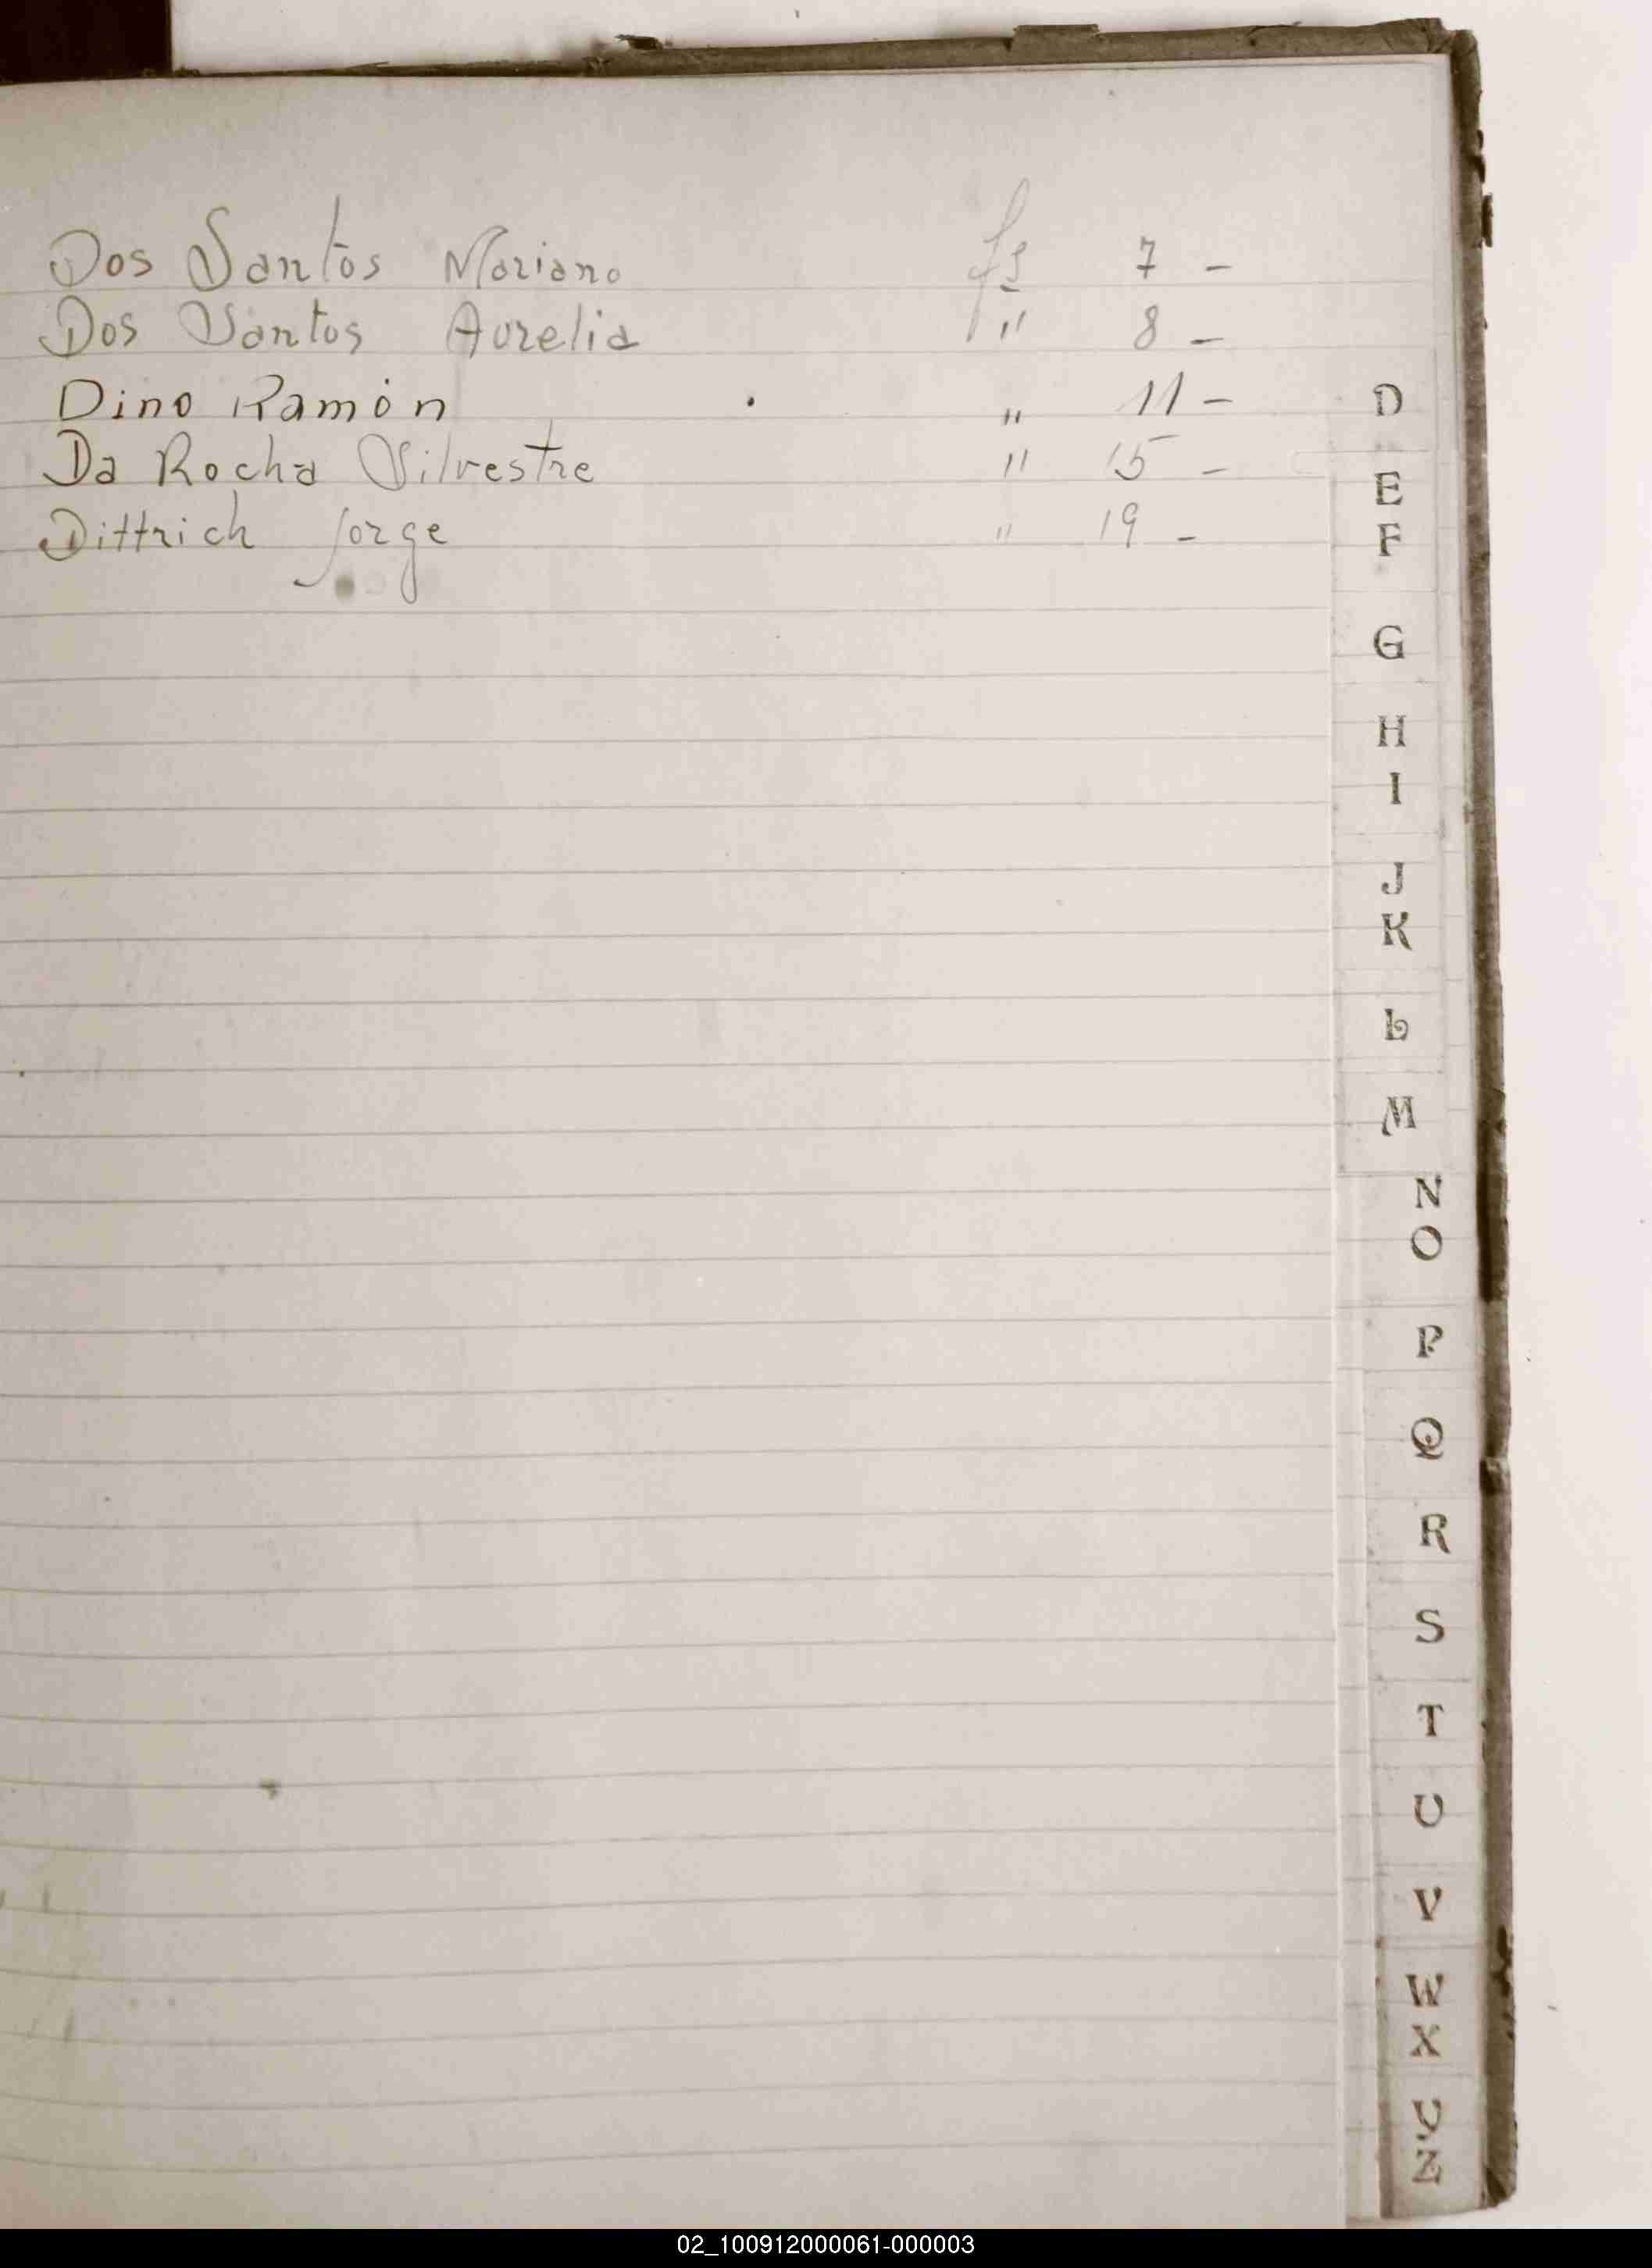 Dos Santos Mariano fs 7 -
Dos Santos Aurelia " 8 -
Dino Ramón " 11 -
Da Rocha Silvestre " 15 -
Dittrich Jorge " 19 -
D
E
F
G
H
I
J
K
L
M
N
O
P
Q
R
S
T
U
V
W
X
Y
Z
02_100912000061-000003